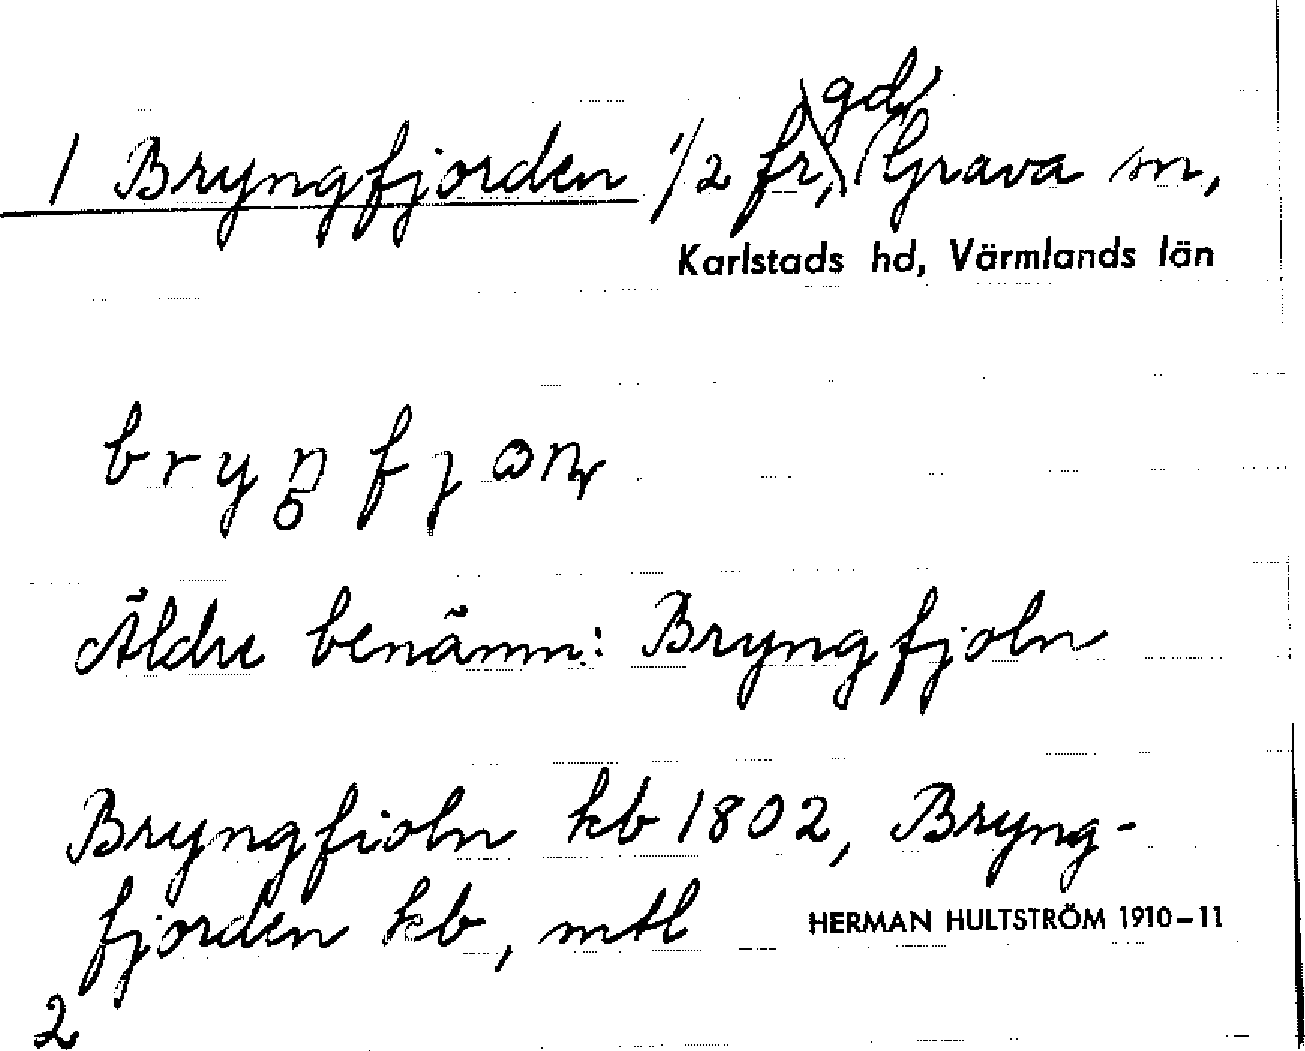 gd
1 Bryngfjorden 1/2 fr, Grava sn,
Karlstads hd, Värmlands län
Äldre benämn: Bryngfjoln
Bryngfioln kb 1802, Bryng-
fjorden kb, mtl
HERMAN HULTSTRÖM 1910–11
2